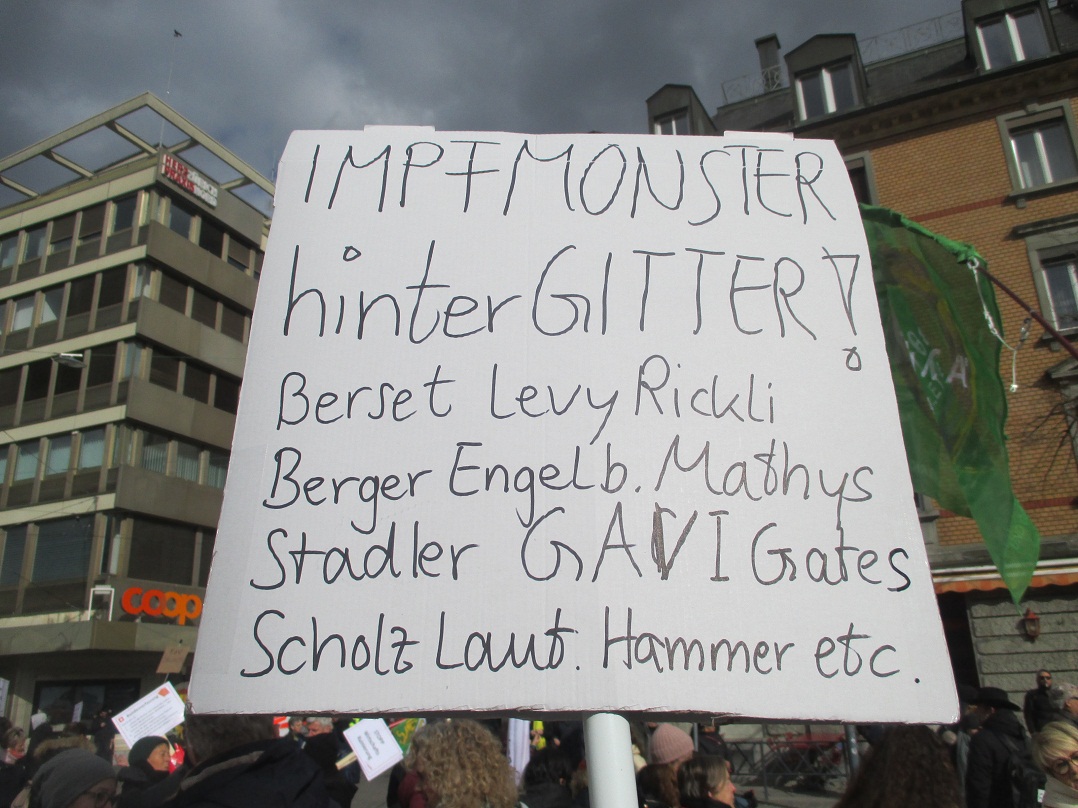 IMPFMONSTER
hinter GITTER!
Berset Levy Rickli
Berger Engelb. Mathys
Stadler GAVI Gates
Scholz Laut. Hammer etc.
coop